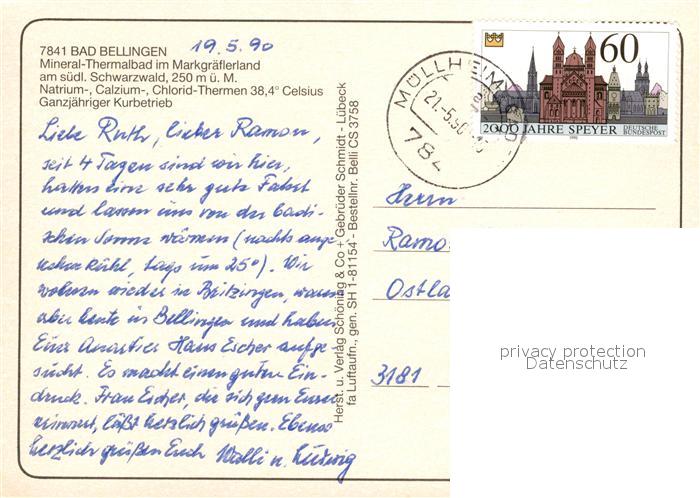 7841 BAD BELLINGEN 19.5.90
Mineral-Thermalbad im Markgräflerland
am südl. Schwarzwald, 250 m ü. M.
Natrium-, Calzium-, Chlorid-Thermen 38,4° Celsius
Ganzjähriger Kurbetrieb
Liebe Ruth, lieber Ramon,
seit 4 Tagen sind wir hier,
hatten eine sehr gute Fahrt
und lassen uns von der badi-
schen Sonne wärmen (nachts ange-
nehm kühl, tags um 25°). Wir
wohnen wieder in Britzingen, waren
aber heute in Bellingen und haben
Eure Hans Escher aufge-
sucht. Es macht einen guten Ein-
druck. Frau Escher, die sich gern Eurer
erinnert, läßt herzlich grüßen. Ebenso
herzlich grüßen Euch Walli u. Ludwig
Herst. u. Verlag Schöning & Co + Gebrüder Schmidt - Lübeck
fa Luftaufn., gen. SH 1-81154 - Bestellnr. Belli CS 3758
MÜLLHEIM
21.-5.90
784
60
2000 JAHRE SPEYER
DEUTSCHE
BUNDESPOST
1990
Herrn
Ramo
Ostla
3181
privacy protection
Datenschutz